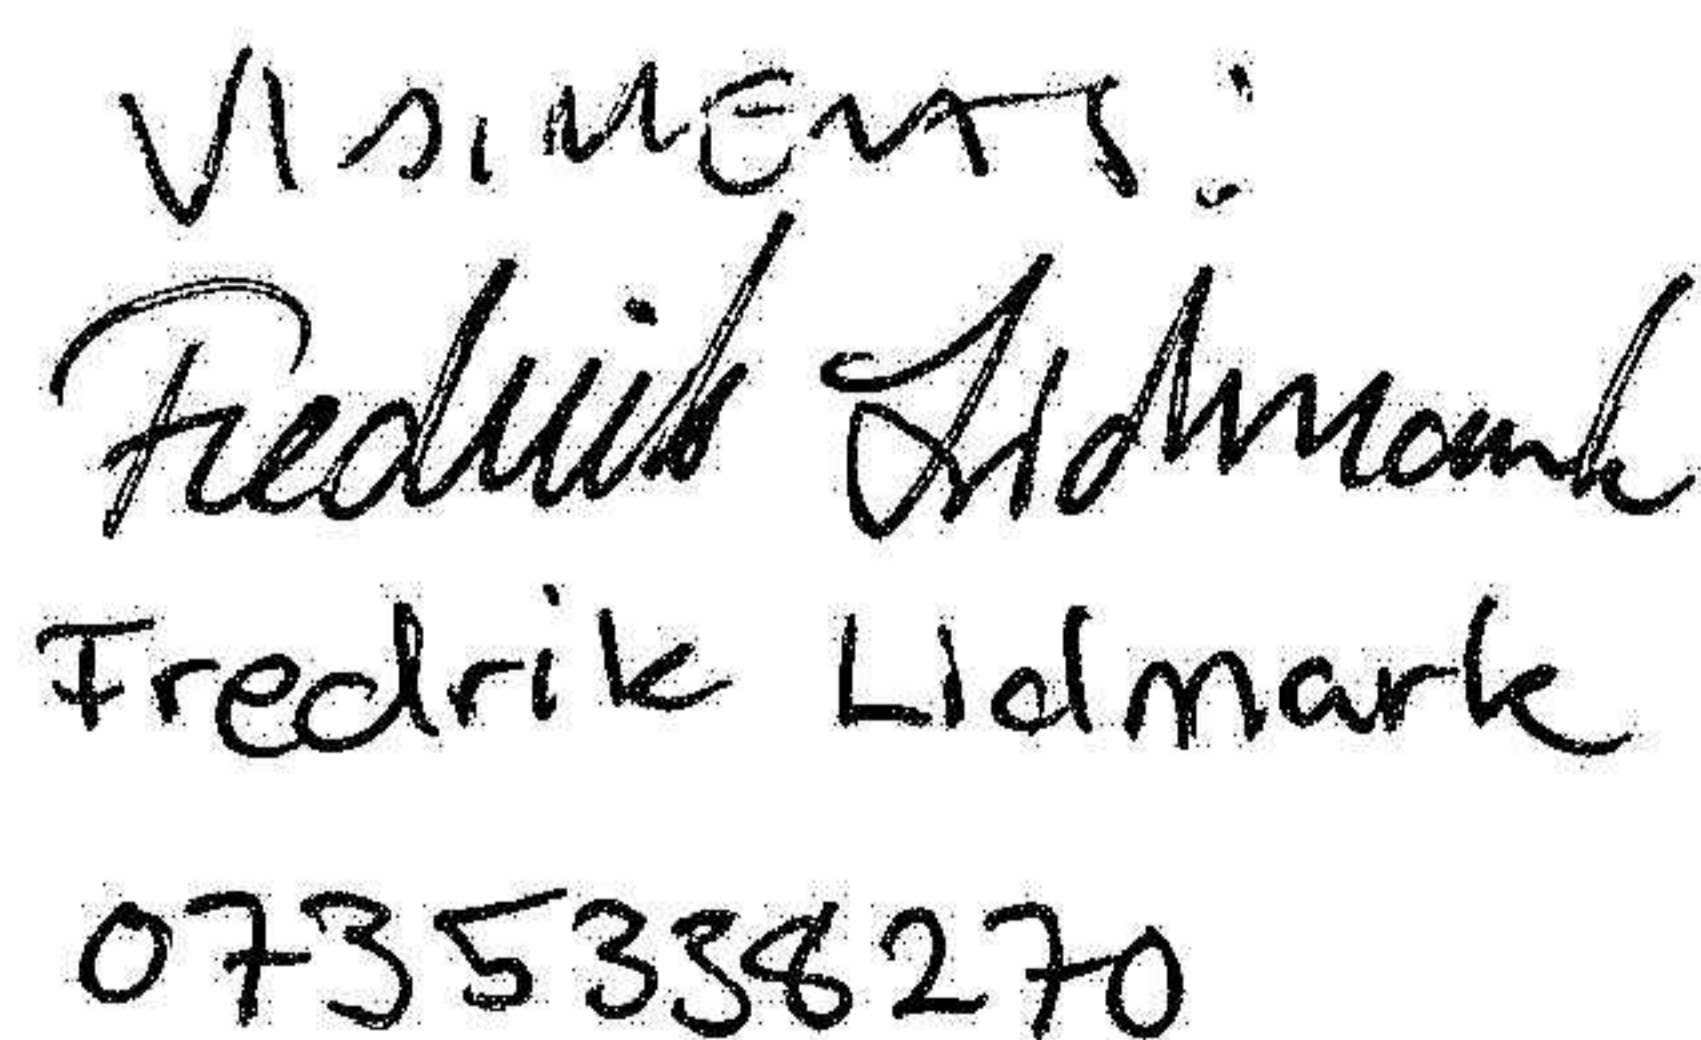 Fredrik Lidmark
Fredrik Lidmark
0735338270